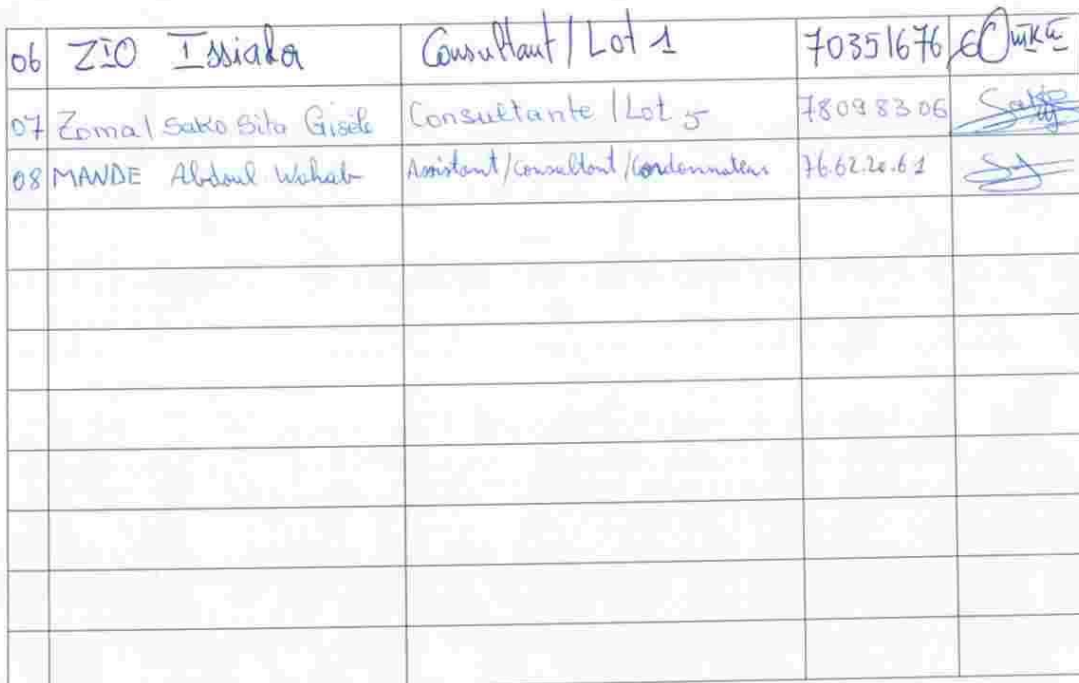 06 ZIO Issiaka Consultant / Lot 1 70351676
07 Zoma / Sako Sita Gisele Consultante / Lot 5 78098306 Sako
08 MANDE Abdoul Wahab Assistant/consultant/Coordonnateur 76.62.20.61